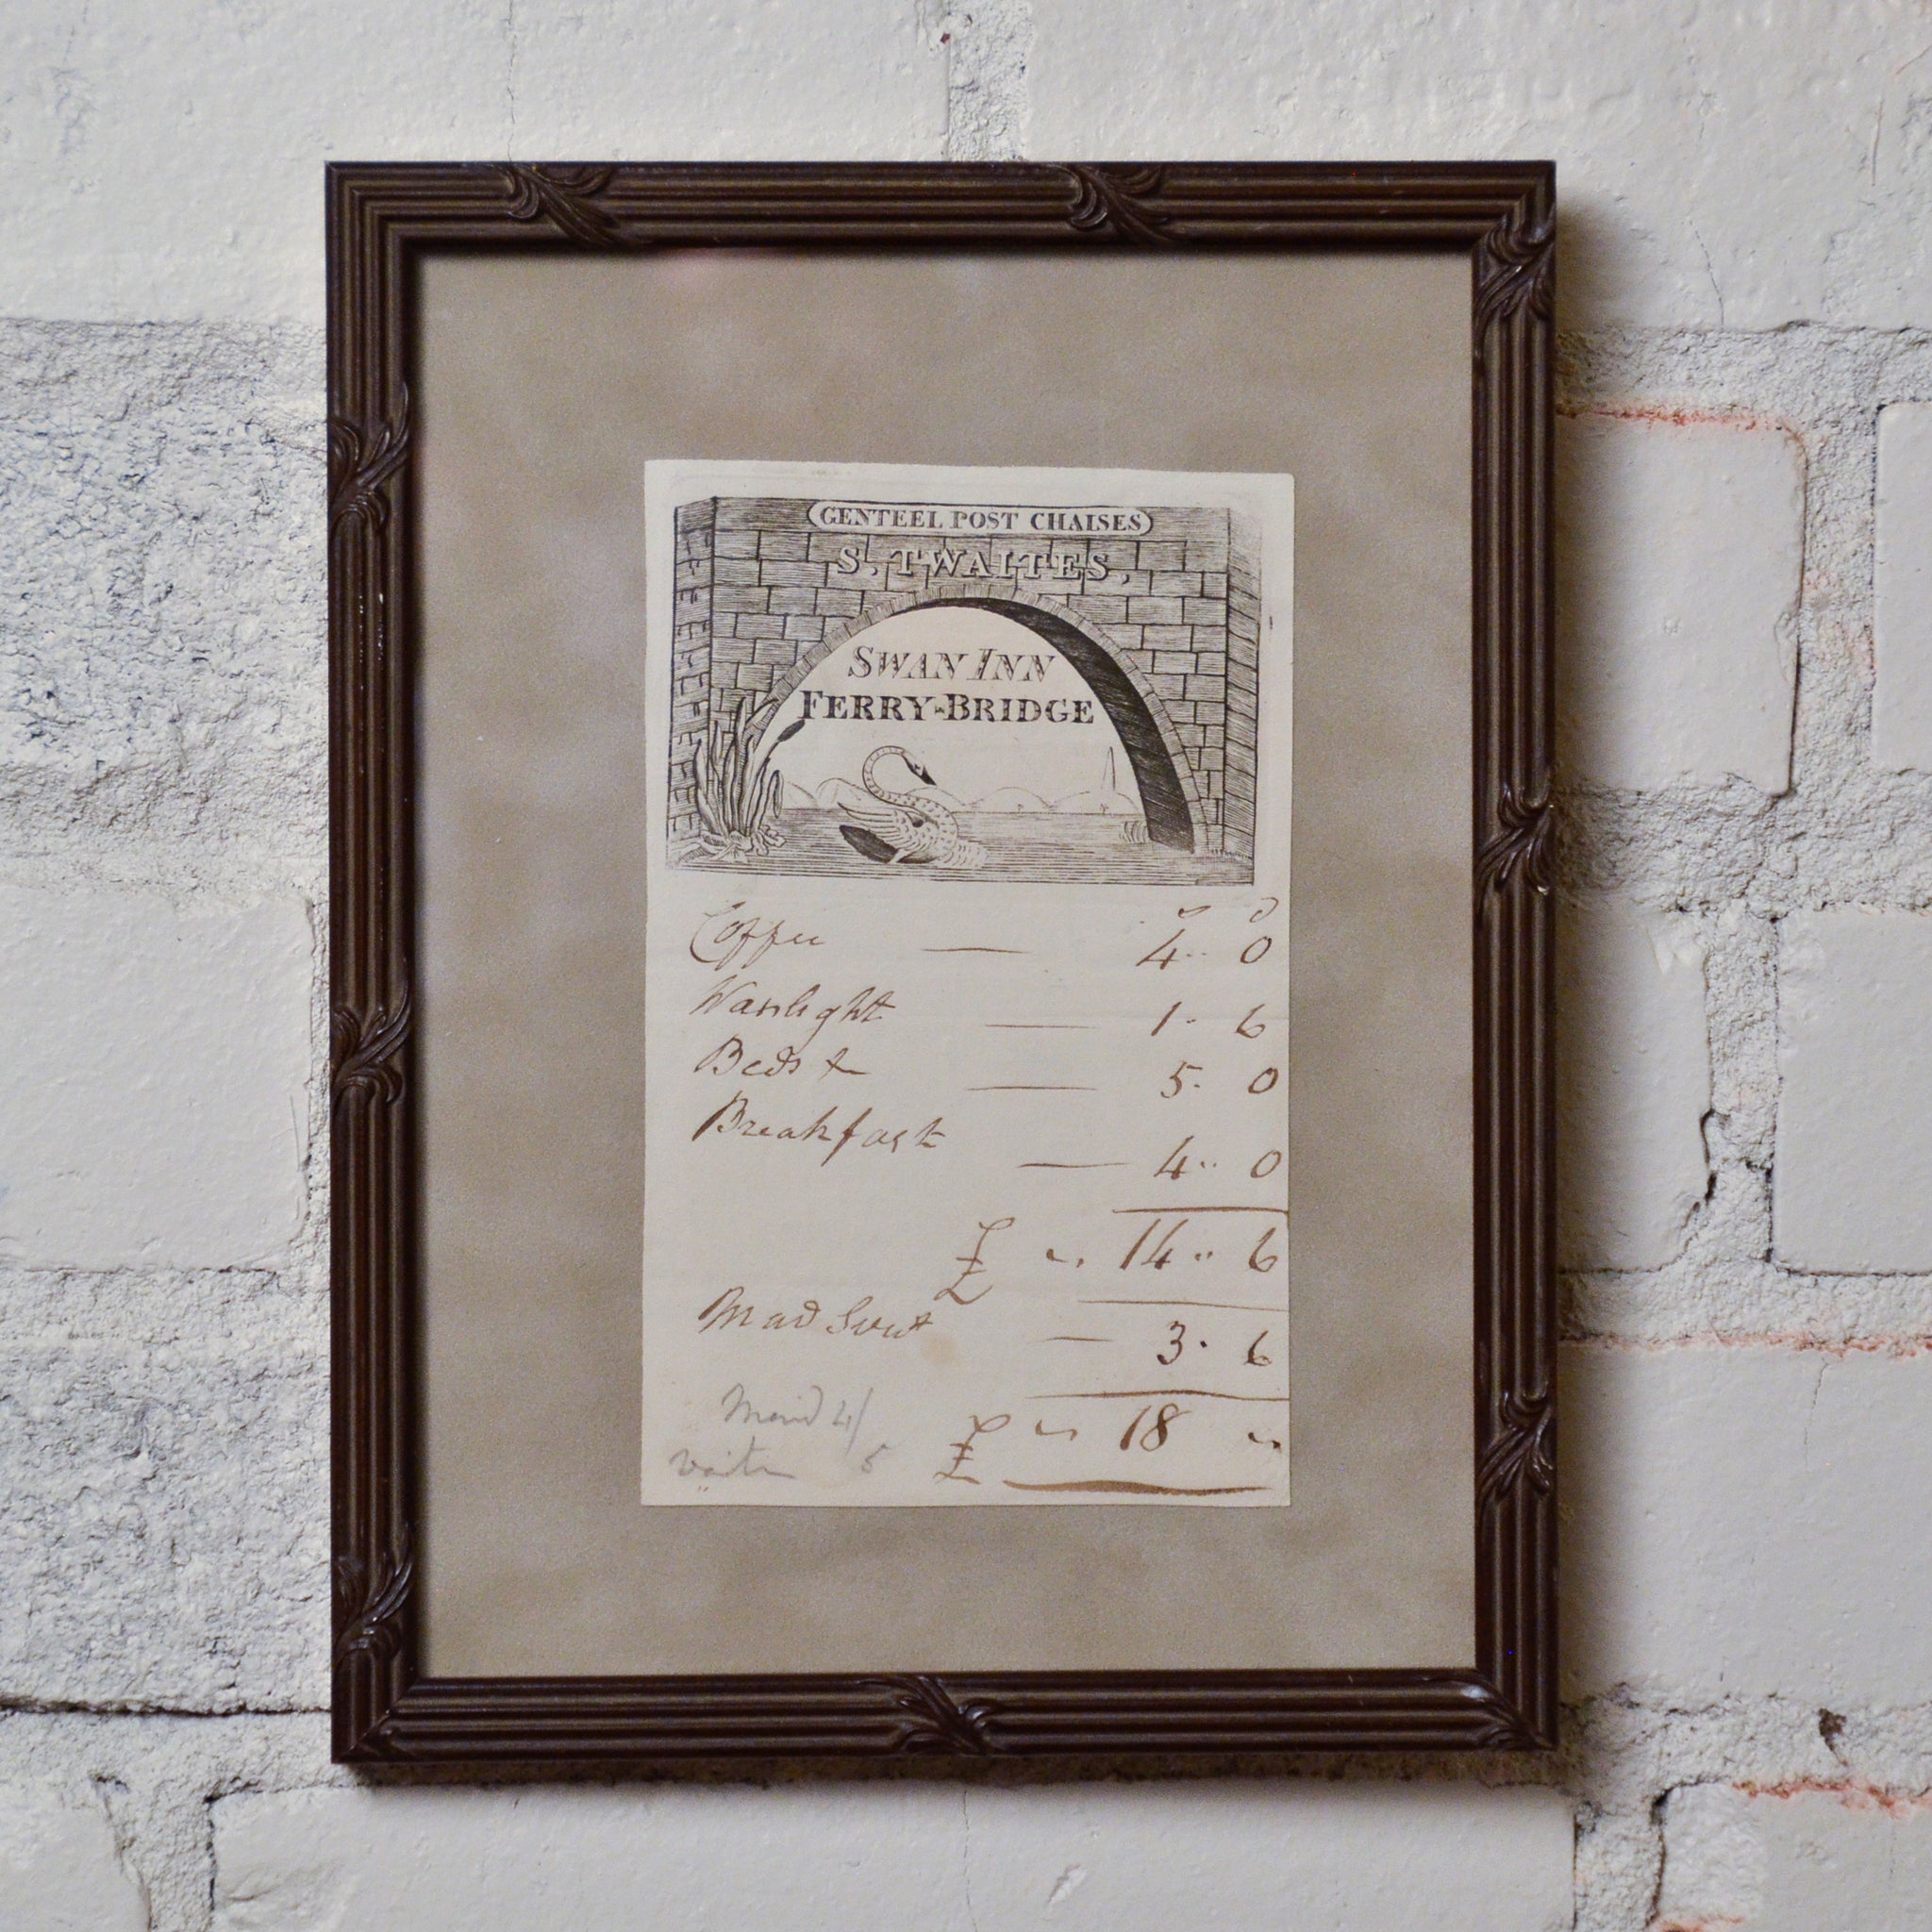 GENTEEL POST CHAISES
S. TWAITES,
SWAN INN
FERRY-BRIDGE
s d
Coffee — 4 .. 0
Waxlight — 1 - 6
Beds & — 5 . 0
Breakfast
— 4 .. 0
£ ~ . 14 .. 6
— 3 . 6
Maid 2/
£ ~ 18 ~
Waiter 5